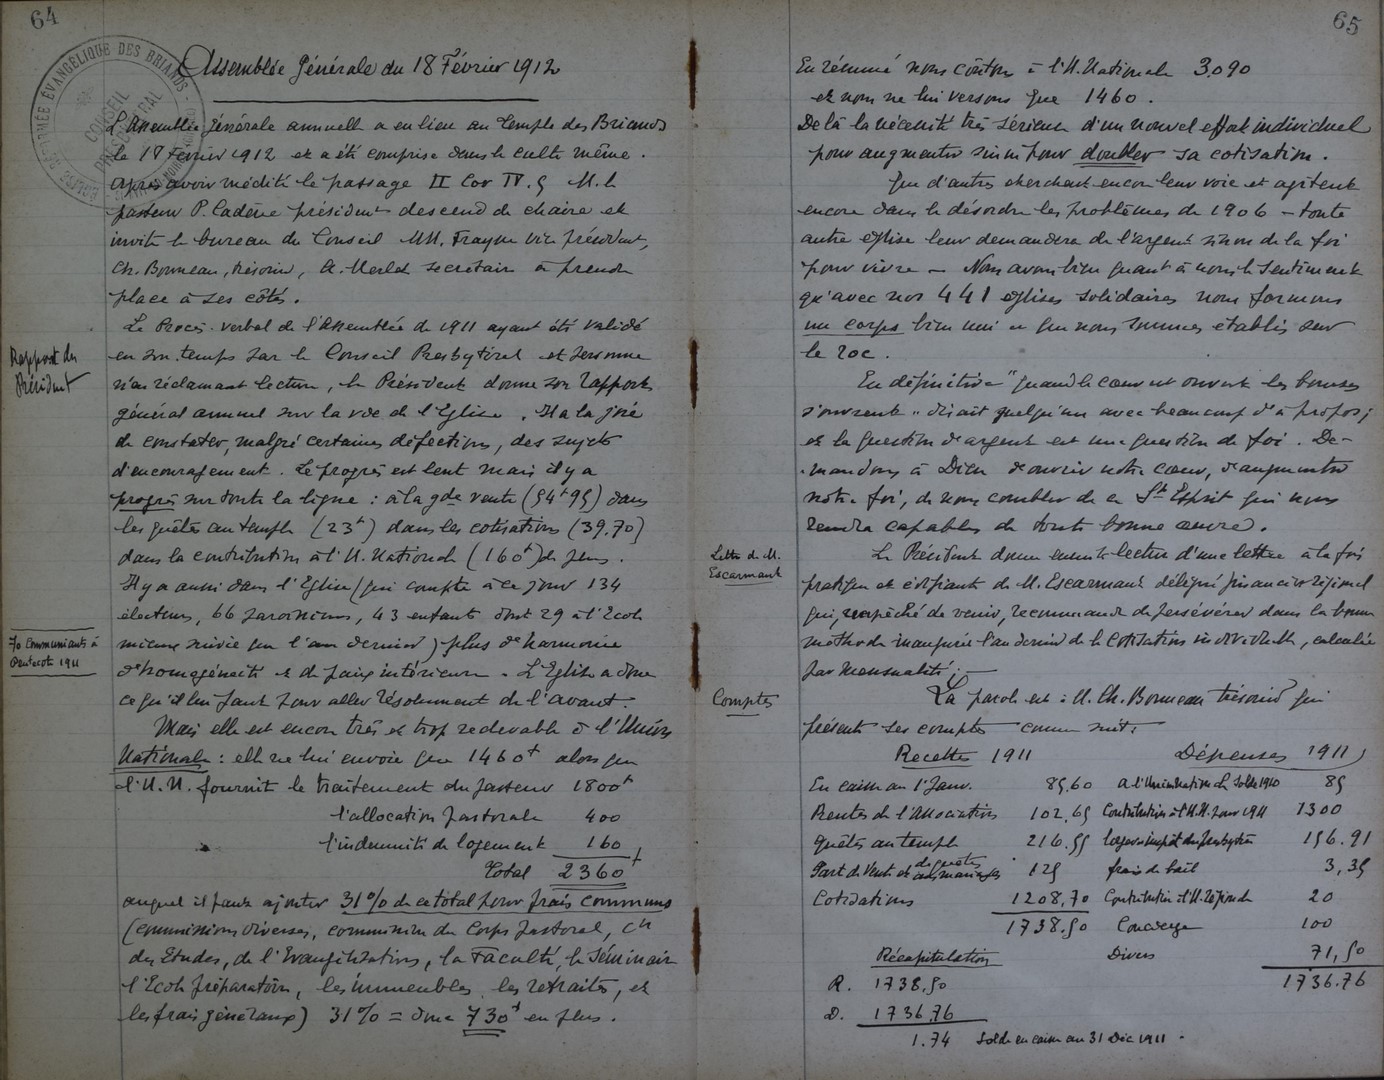 64
Assemblée Générale du 18 Février 1912
EGLISE REFORMÉE ÉVANGÉLIQUE DES BRIANDS
CONSEIL PRESBYTÉRAL
L'Assemblée générale annuelle a eu lieu au temple des Briands
le 18 Février 1912 et a été comprise dans le culte même.
Après avoir médité le passage II Cor IV. 5 M. le
pasteur P. Cadène président descend de chaire et
invite le bureau du Conseil MM. Fraysse vice président,
Ch. Bonneau, trésorier, A. Merle secrétaire à prendre
place à ses côtés.
Le Procès-verbal de l'Assemblée de 1911 ayant été validé
Rapport du
Président
en son temps par le Conseil Presbytéral et personne
n'en réclamant lecture, le Président donne son rapport
général annuel sur la vie de l'Eglise. Il a la joie
de constater, malgré certaines défections, des sujets
d'encouragement. Le progrès est lent mais il y a
progrès sur toute la ligne : à la gde vente (54f95) dans
les quêtes au temple (23f) dans les cotisations (39,70)
dans la contribution à l'U. Nationale (160f) de plus.
Il y a aussi dans l'Eglise (qui compte à ce jour 134
électeurs, 66 paroissiens, 43 enfants dont 29 à l'Ecole
70 Communiants à
Pentecôte 1911
mieux suivie que l'an dernier) plus d'harmonie
d'homogénéité et de paix intérieure. L'Eglise a donc
ce qu'il lui faut pour aller résolument de l'avant.
Mais elle est encore très et trop redevable à l'Union
Nationale : elle ne lui envoie que 1460f alors que
l'U. N. fournit le traitement du pasteur 1800f
l'allocation pastorale 400
l'indemnité de logement 160
Total 2360f
auquel il faut ajouter 31% de ce total pour frais communs
(Commissions diverses, commission du Corps pastoral, cn
des Etudes, de l'Evangélisation, la Faculté, le Séminaire
l'Ecole préparatoire, les immeubles, les retraites, et
les frais généraux) 31% = donc 730f en plus.
65
En résumé nous coûtons à l'U. Nationale 3.090
et nous ne lui versons que 1460.
De là la nécessité très sérieuse d'un nouvel effort individuel
pour augmenter sinon pour doubler sa cotisation.
Que d'autres cherchent encore leur voie et agitent
encore dans le désordre les problèmes de 1906 – toute
autre église leur demandera de l'argent sinon de la foi
pour vivre – Nous avons bien quant à nous le sentiment
qu'avec nos 441 églises solidaires nous formons
un corps bien uni et que nous sommes établis sur
le roc.
En définitive "quand le cœur est ouvert les bourses
s'ouvrent" disait quelqu'un avec beaucoup d'à propos ;
et la question d'argent est une question de foi. De-
mandons à Dieu d'ouvrir notre cœur, d'augmenter
notre foi, de nous combler de ce St Esprit qui nous
rendra capables de toute bonne œuvre.
Lettre de M.
Escarmant
Le Président donne ensuite lecture d'une lettre à la fois
pratique et édifiante de M. Escarmant délégué financier régional
qui, empêché de venir, recommande de persévérer dans la bonne
méthode inaugurée l'an dernier de la Cotisation individuelle, calculée
par mensualité.
Comptes
La parole est à M. Ch. Bonneau trésorier qui
présente ses comptes comme suit :
Recettes 1911 Dépenses 1911
En caisse au 1 Janv. 85.60 A l'Union Nationale Solde 1910 85
Rentes de l'Association 102.65 Contribution à l'U.N. pour 1911 1300
Quêtes au temple 216.55 Loyer et impôt du presbytère 156.91
Part de Vente et de quêtes aux mariages 125 frais de bail 3,35
Cotisations 1208,70 Contribution à l'U. Régionale 20
1738.50 Concierge 100
Récapitulation Divers 71,50
R. 1738,50 1736.76
D. 1736.76
1.74 Solde en caisse au 31 Dic 1911.